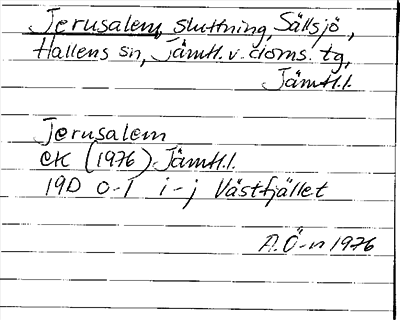 Jerusalem, sluttning, Sällsjö,
Hallens sn, Jämtl. v. doms. tg,
Jämtl. l.
Jerusalem
ek (1976) Jämtl. l.
19D 0-1 i-j Västfjället
A. Ö-n 1976